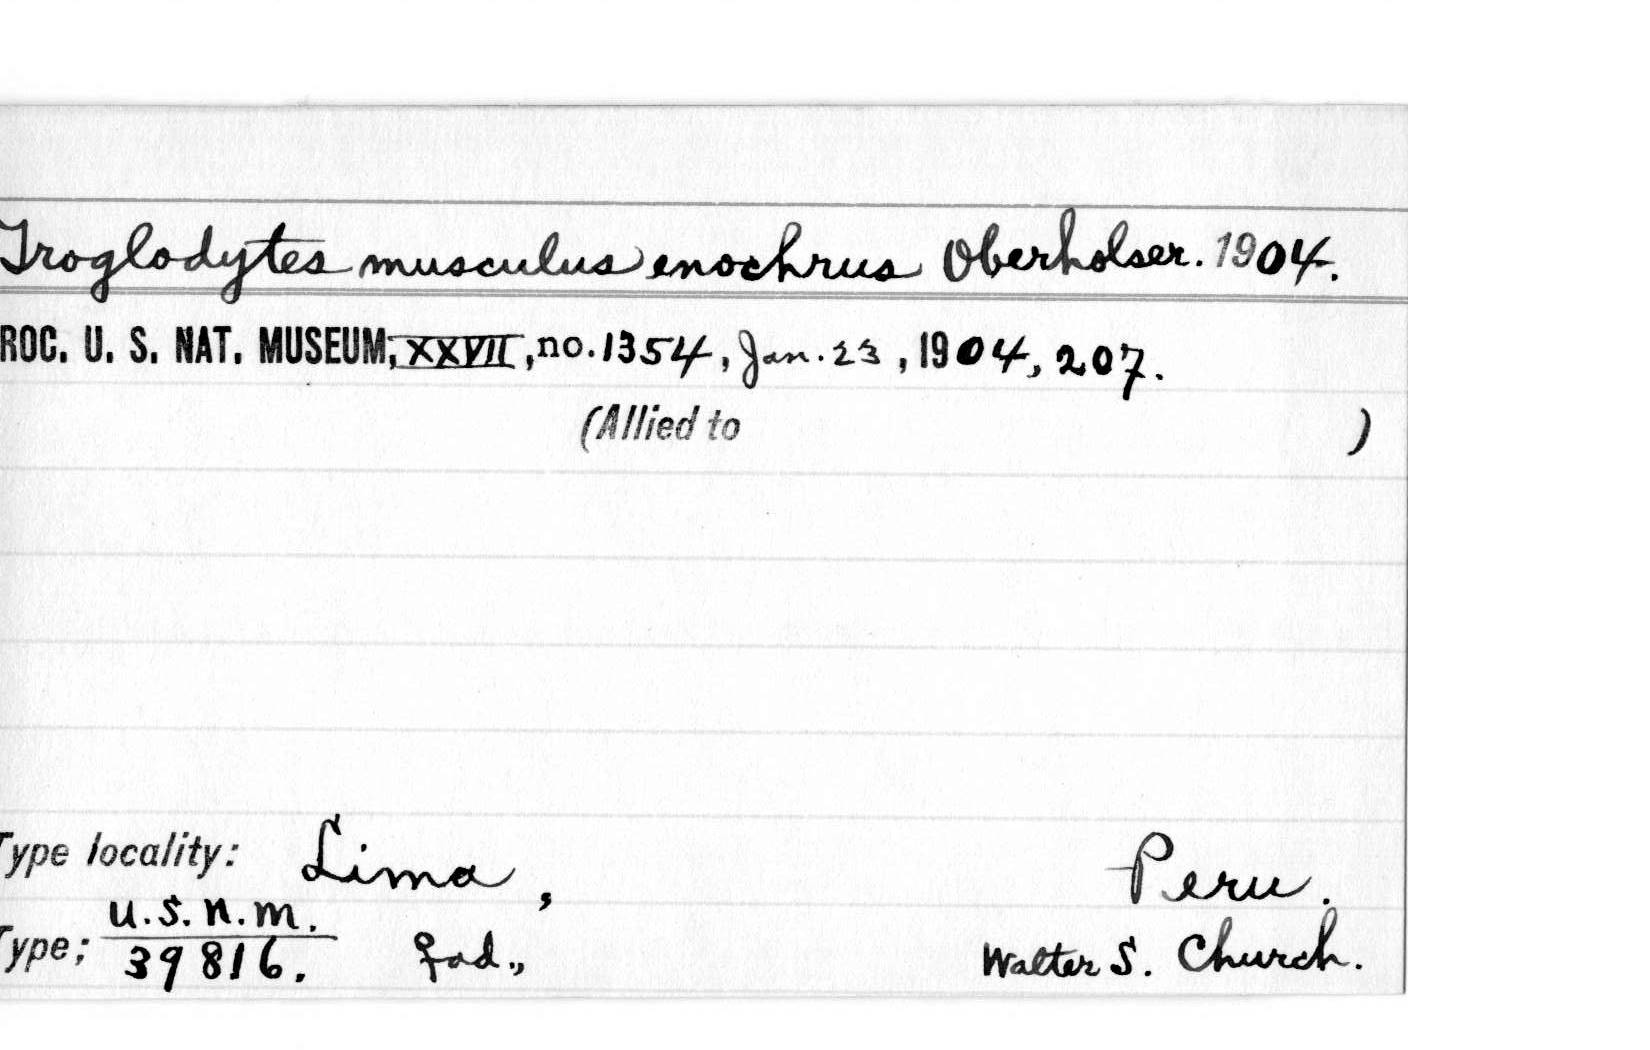 Troglodytes musculus enochrus Oberholser. 1904.
ROC. U. S. NAT. MUSEUM, XXVII, no. 1354, Jan. 23, 1904, 207.
(Allied to )
Type locality: Lima, Peru.
Type; U.S.N.M. 39816. ♀ad., Walter S. Church.